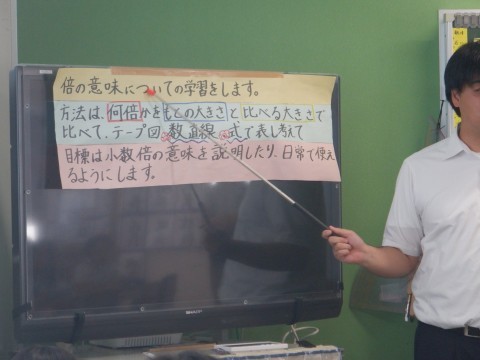 倍の意味についての学習をします。
方法は、何倍かをもとの大きさと比べる大きさで
比べて、テープ図、数直線、式で表し考えて
目標は小数倍の意味を説明したり、日常で使え
るようにします。
SHARP